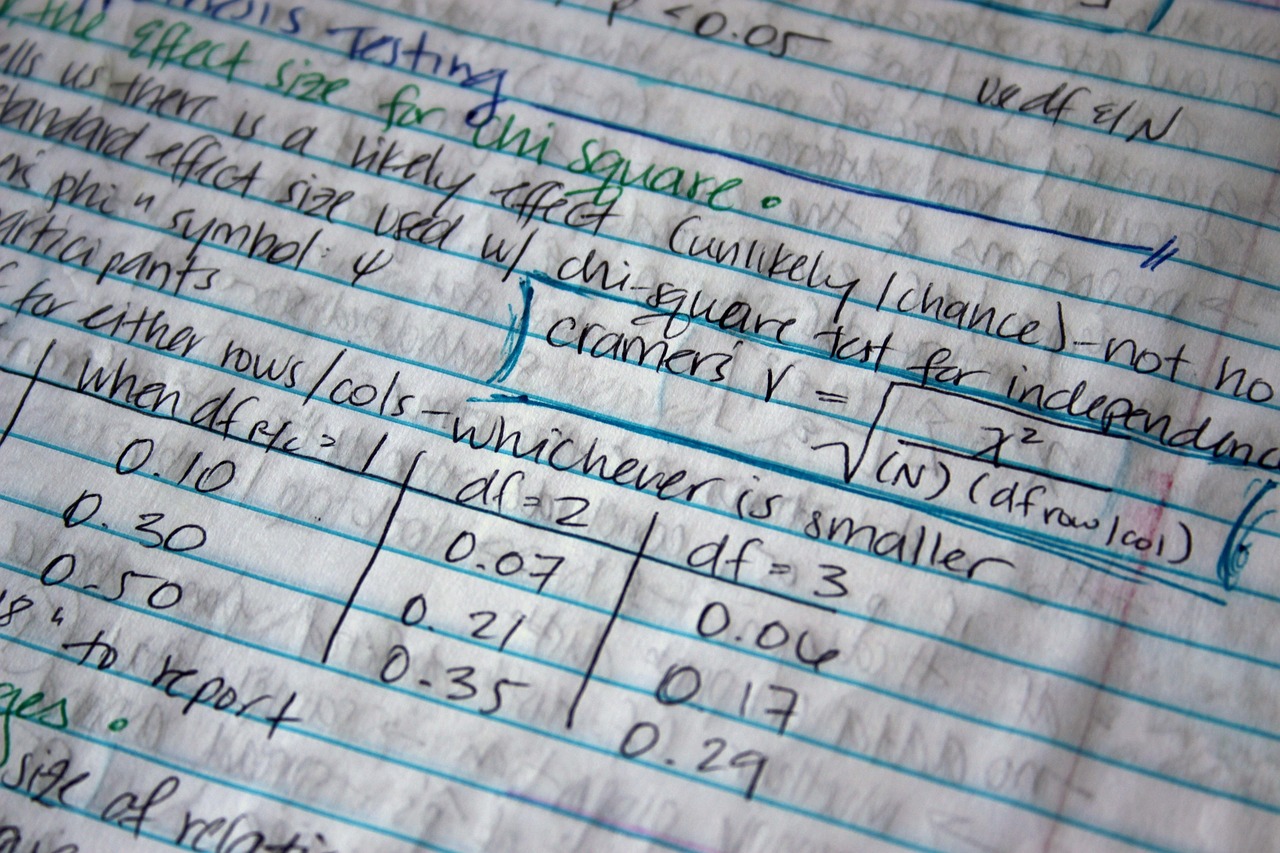 p < 0.05
use df & N
Testing
the effect size for chi square.
us there is a likely effect (unlikely/chance) - not
standard effect size used w/ chi-square test for
phi" symbol: φ
participants
cramers V = √ x² / (N) (df row/col)
for either rows/cols - whichever is smaller
when df R/C = 1 | df = 2 | df = 3
0.10 | 0.07 | 0.06
0.30 | 0.21 | 0.17
0.50 | 0.35 | 0.29
" to report
size of